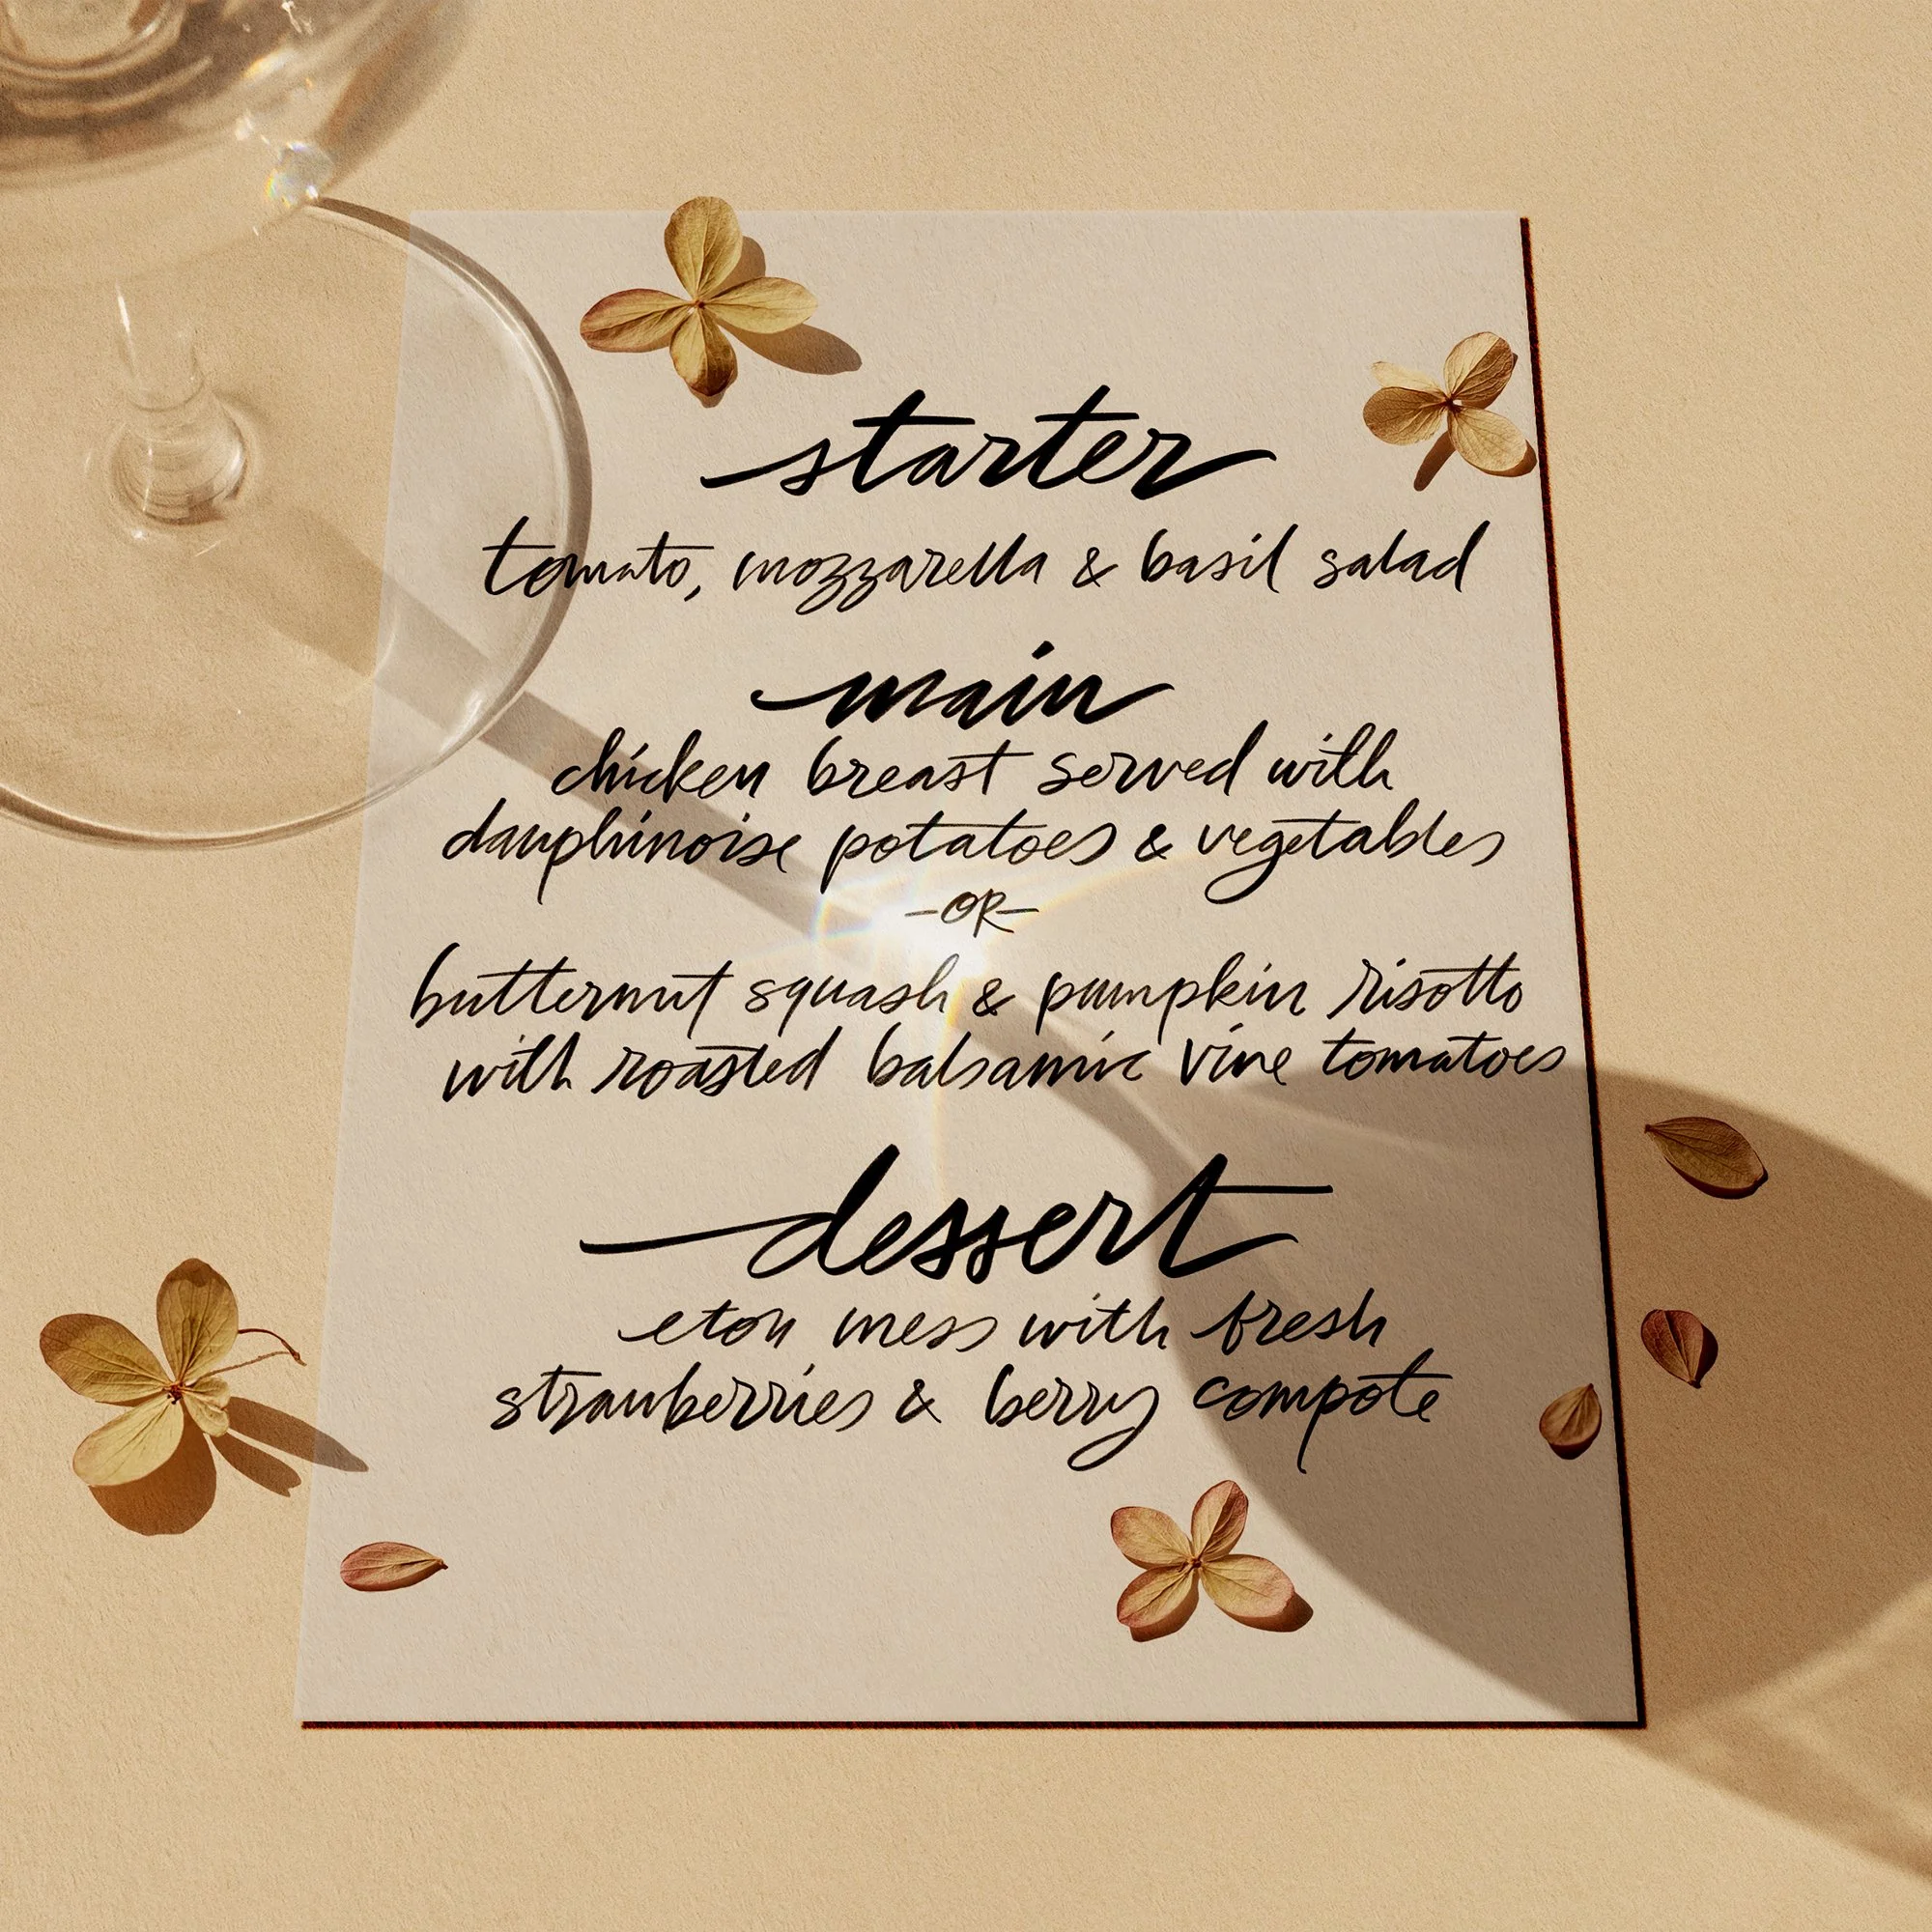 starter
tomato, mozzarella & basil salad
main
chicken breast served with
dauphinoise potatoes & vegetables
-OR-
butternut squash & pumpkin risotto
with roasted balsamic vine tomatoes
dessert
eton mess with fresh
strawberries & berry compote